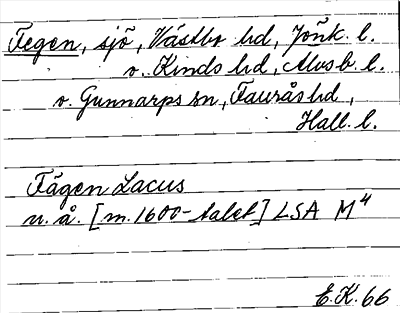 Fegen, sjö, Västbo hd, Jönk. l.
o. Kinds hd, Älvsb. l.
o. Gunnarps sn, Faurås hd,
Hall. l.
Fägen Lacus
u. å. [m. 1600-talet] LSA M 4
E.K. 66